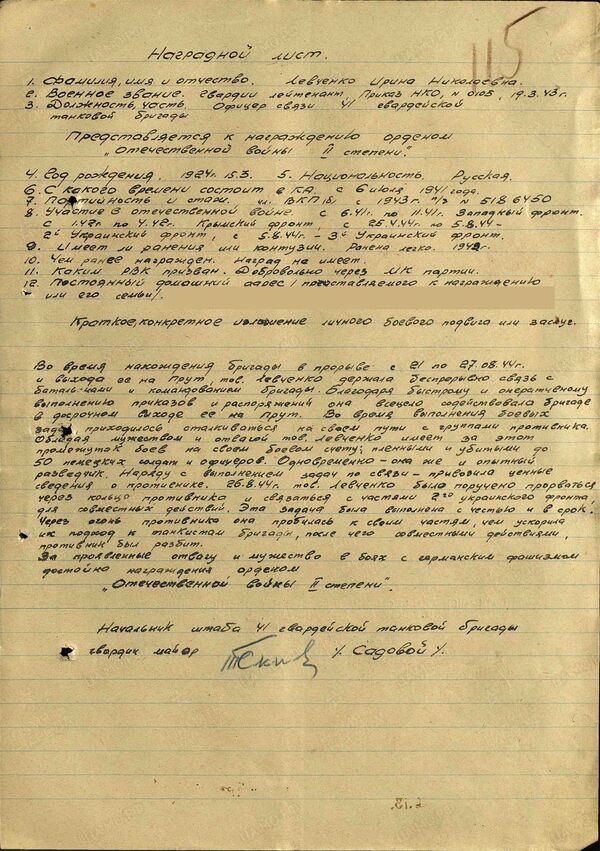 115
Наградной лист.
1. Фамилия, имя и отчество. Левченко Ирина Николаевна.
2. Военное звание. Гвардии лейтенант, Приказ НКО, N 0105, 19.3.43г.
3. Должность, часть. Офицер связи 41 гвардейской
танковой бригады
Представляется к награждению орденом
„Отечественной войны II степени."
4. Год рождения. 1924г. 15.3. 5. Национальность. Русская.
6. С какого времени состоит в КА. с 6 июля 1941 года.
7. Партийность и стаж. чл. ВКП/б/ с 1943г. п/б N 5186450
8. Участие в отечественной войне. с 6.41г. по 11.41г. Западный фронт.
с 1.42г по 4.42г. Крымский фронт с 25.4.44г по 5.8.44 -
2й Украинский фронт, с 5.8.44г - 3й Украинский фронт.
9. Имеет ли ранения или контузии. Ранена легко. 1942г.
10. Чем ранее награжден. Наград не имеет.
11. Каким РВК призван. Добровольно через МК партии.
12. Постоянный домашний адрес / представляемого к награждению
или его семьи/.
Краткое, конкретное изложение личного боевого подвига или заслуг.
Во время нахождения бригады в прорыве с 21 по 27.08.44г.
и выхода ее на Прут, тов. Левченко держала беспрерывно связь с
батальонами и командованием бригады. Благодаря быстрому и оперативному
выполнению приказов и распоряжений она всецело содействовала бригаде
в досрочном выходе ее на Прут. Во время выполнения боевых
задач приходилось сталкиваться на своем пути с группами противника.
Обладая мужеством и отвагой тов. Левченко имеет за этот
промежуток боев на своем боевом счету: пленными и убитыми до
50 немецких солдат и офицеров. Одновременно - она же и опытный
разведчик. Наряду с выполнением задач по связи - привозила ценные
сведения о противнике. 26.8.44г. тов. Левченко было поручено прорваться
через кольцо противника и связаться с частями 2го украинского фронта,
для совместных действий. Эта задача была выполнена с честью и в срок.
Через огонь противника она пробилась к своим частям, чем ускорила
их подход к танкистам бригады, после чего совместными действиями,
противник был разбит.
За проявленные отвагу и мужество в боях с германским фашизмом
достойна награждения орденом
„Отечественной войны II степени".
Начальник штаба 41 гвардейской танковой бригады
гвардии майор /. Садовой /.